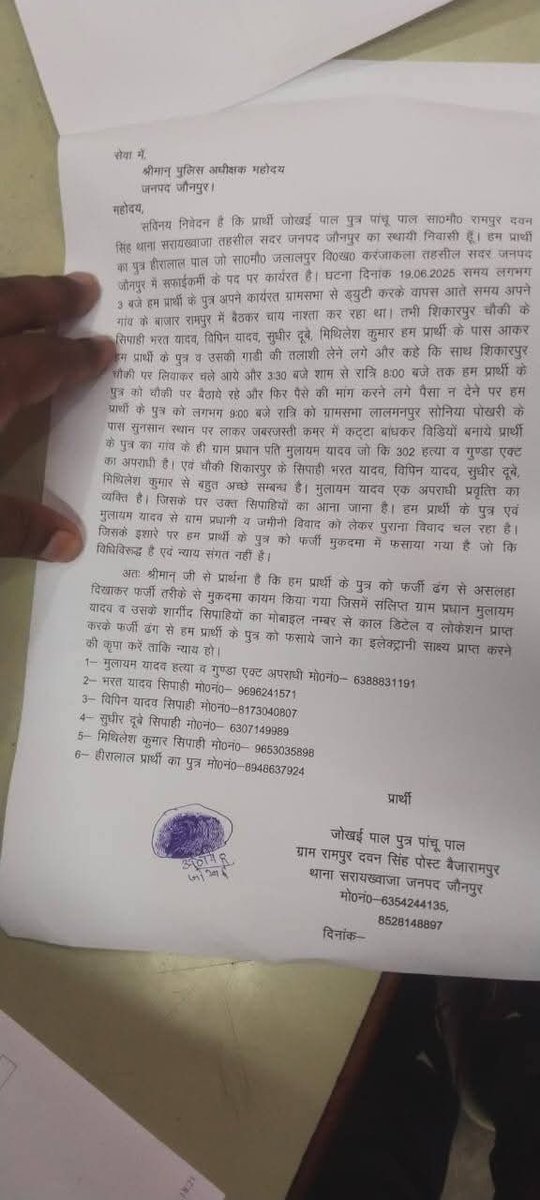 सेवा में,
श्रीमान् पुलिस अधीक्षक महोदय
जनपद जौनपुर।
महोदय,
सविनय निवेदन है कि प्रार्थी जोखई पाल पुत्र पांचू पाल सा0मौ0 रामपुर दवन
सिंह थाना सरायख्वाजा तहसील सदर जनपद जौनपुर का स्थायी निवासी हूँ। हम प्रार्थी
का पुत्र हीरालाल पाल जो सा0मौ0 जलालपुर वि0ख0 करंजाकला तहसील सदर जनपद
जौनपुर में सफाईकर्मी के पद पर कार्यरत है। घटना दिनांक 19.06.2025 समय लगभग
3 बजे हम प्रार्थी के पुत्र अपने कार्यरत ग्रामसभा से ड्युटी करके वापस आते समय अपने
गांव के बाजार रामपुर में बैठकर चाय नाश्ता कर रहा था। तभी शिकारपुर चौकी के
सिपाही भरत यादव, विपिन यादव, सुधीर दूबे, मिथिलेश कुमार हम प्रार्थी के पास आकर
हम प्रार्थी के पुत्र व उसकी गाडी की तलाशी लेने लगे और कहे कि साथ शिकारपुर
चौकी पर लिवाकर चले आये और 3:30 बजे शाम से रात्रि 8:00 बजे तक हम प्रार्थी के
पुत्र को चौकी पर बैठाये रहे और फिर पैसे की मांग करने लगे पैसा न देने पर हम
प्रार्थी के पुत्र को लगभग 9:00 बजे रात्रि को ग्रामसभा लालमनपुर सोनिया पोखरी के
पास सुनसान स्थान पर लाकर जबरजस्ती कमर में कट्टा बांधकर विडियों बनाये प्रार्थी
के पुत्र का गांव के ही ग्राम प्रधान पति मुलायम यादव जो कि 302 हत्या व गुण्डा एक्ट
का अपराधी है। एवं चौकी शिकारपुर के सिपाही भरत यादव, विपिन यादव, सुधीर दूबे,
मिथिलेश कुमार से बहुत अच्छे सम्बन्ध है। मुलायम यादव एक अपराधी प्रवृत्ति का
व्यक्ति है। जिसके घर उक्त सिपाहियों का आना जाना है। हम प्रार्थी के पुत्र एवं
मुलायम यादव से ग्राम प्रधानी व जमीनी विवाद को लेकर पुराना विवाद चल रहा है।
जिसके इशारे पर हम प्रार्थी के पुत्र को फर्जी मुकदमा में फसाया गया है जो कि
विधिविरूद्ध है एवं न्याय संगत नहीं है।
अतः श्रीमान् जी से प्रार्थना है कि हम प्रार्थी के पुत्र को फर्जी ढंग से असलहा
दिखाकर फर्जी तरीके से मुकदमा कायम किया गया जिसमें सलिप्त ग्राम प्रधान मुलायम
यादव व उसके शार्गीद सिपाहियों का मोबाइल नम्बर से काल डिटेल व लोकेशन प्राप्त
करके फर्जी ढंग से हम प्रार्थी के पुत्र को फसाये जाने का इलेक्ट्रानी साक्ष्य प्राप्त करने
की कृपा करें ताकि न्याय हो।
1– मुलायम यादव हत्या व गुण्डा एक्ट अपराधी मो0नं0– 6388831191
2– भरत यादव सिपाही मो0नं0– 9696241571
3– विपिन यादव सिपाही मो0नं0–8173040807
4– सुधीर दूबे सिपाही मो0नं0– 6307149989
5– मिथिलेश कुमार सिपाही मो0नं0– 9653035898
6– हीरालाल प्रार्थी का पुत्र मो0नं0–8948637924
प्रार्थी
जोखई पाल पुत्र पांचू पाल
ग्राम रामपुर दवन सिंह पोस्ट बैजारामपुर
थाना सरायख्वाजा जनपद जौनपुर
मो0नं0–6354244135,
8528148897
दिनांक–